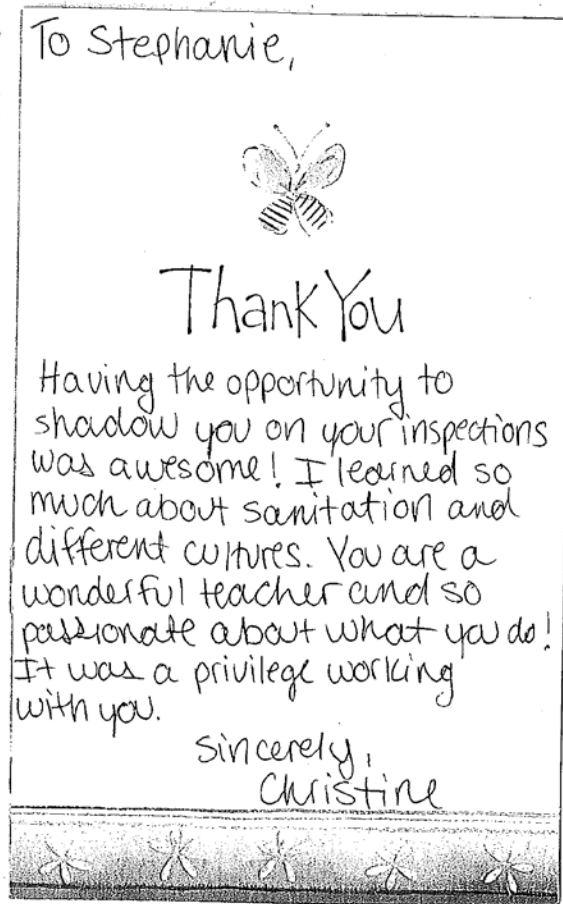 To Stephanie,
Thank You
Having the opportunity to
shadow you on your inspections
was awesome! I learned so
much about sanitation and
different cultures. You are a
wonderful teacher and so
passionate about what you do!
It was a privilege working
with you.
Sincerely,
Christine